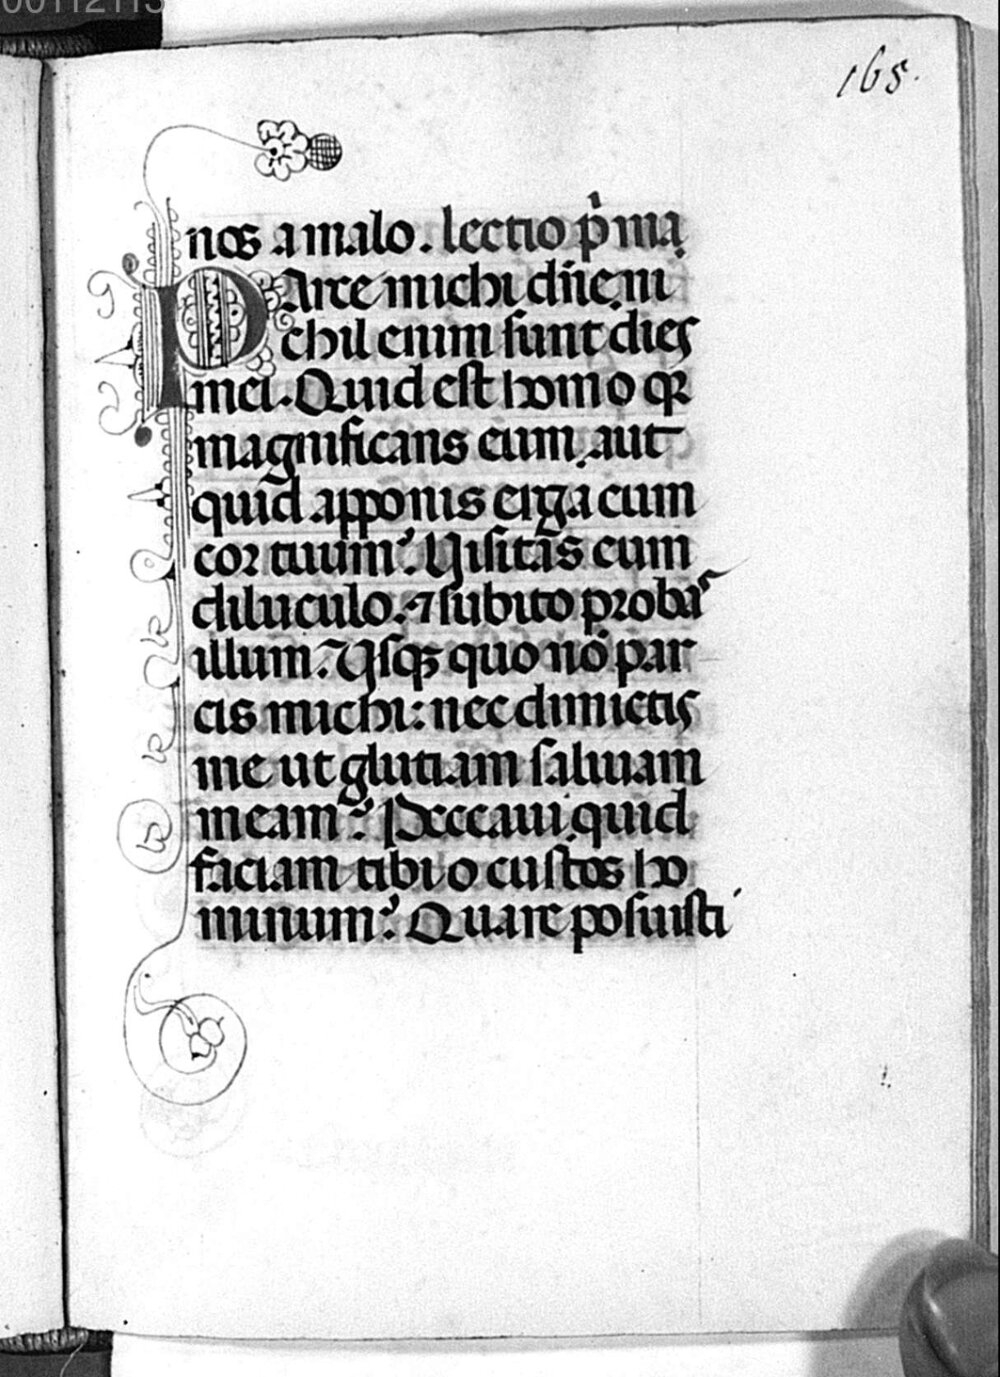 165.
nos a malo. lectio p̃ma
PArce michi dñe. ni
chil enim sunt dies
mei. Quid est homo qꝛ
magnificans eum. aut
quid apponis erga eum
cor tuum? Uisitãs eum
diluculo. ⁊ subito probaˢ
illum? Usqꝫ quo nõ par
cis michi: nec dimictis
me ut glutiam saliuam
meam? Peccaui. quid
faciam tibi o custos ho
minum? Quare posuisti